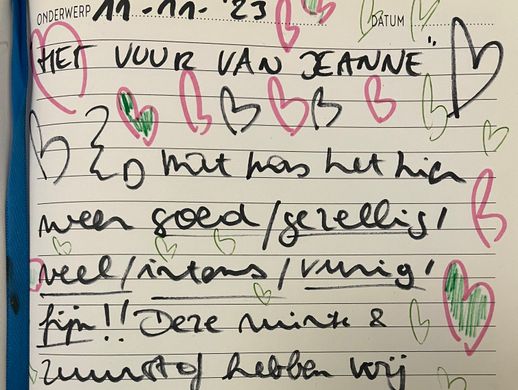 ONDERWERP 11-11-'23 DATUM
"HET VUUR VAN JEANNE"
Wat was het hier
weer goed/gezellig/
veel/intens/vurig/
fijn!! Deze ruimte &
zuurstof hebben wij